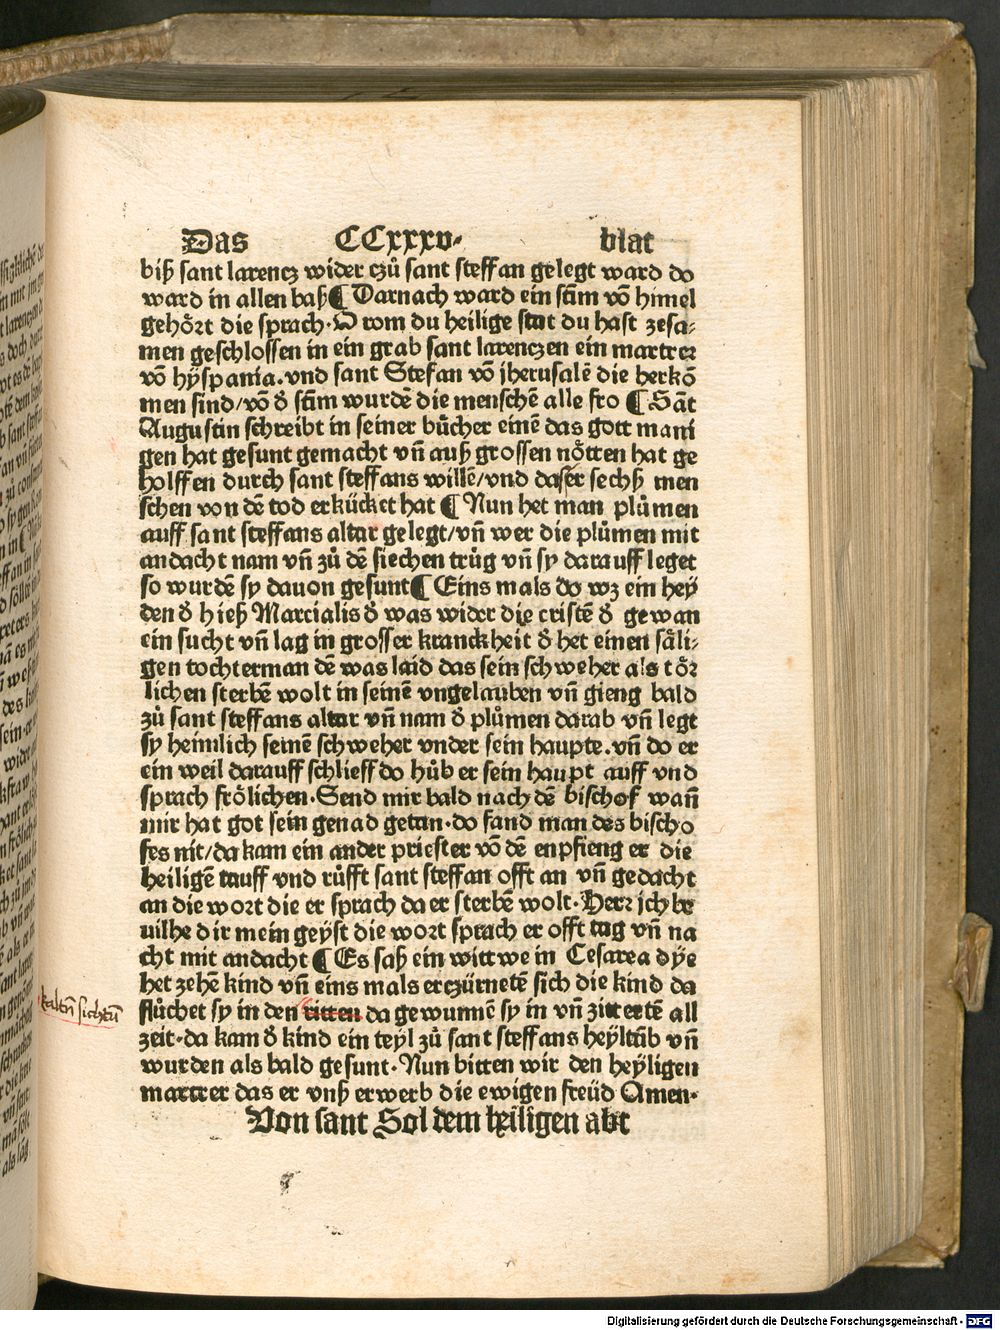 Das CCxxxv· blat
biß sant larencz wider czů sant steffan gelegt ward do
ward in allen baß ¶ Darnach ward ein stim vō himel
gehört die sprach· O rom du heilige stat du hast zesa⸗
men geschlossen in ein grab sant larenczen ein martrer
vō hyspania. vnd sant Stefan vō jherusalē die herkō
men sind/ vō d̕ stim wurdē die menschē alle fro ¶ Sāt
Augustin schreibt in seiner bücher einē das gott mani
gen hat gesunt gemacht vn̄ auß grossen nötten hat ge
holffen durch sant steffans willē/ vnd das er sechß men
schen von dē tod erkücket hat ¶ Nun het man plůmen
auff sant steffans altar gelegt/ vn̄ wer die plůmen mit
andacht nam vn̄ zů dē siechen trůg vn̄ sy darauff leget
so wurdē sy dauon gesunt ¶ Eins mals do wz ein hey
den d̕ hieß Marcialis d̕ was wider die cristē d̕ gewan
ein sucht vn̄ lag in grosser kranckheit d̕ het einen säli⸗
gen tochterman dē was laid das sein schweher als tör
lichen sterbē wolt in seinē vngelauben vn̄ gieng bald
zů sant steffans altar vn̄ nam d̕ plůmen darab vn̄ legt
sy heimlich seinē schweher vnder sein haupte. vn̄ do er
ein weil darauff schlieff do hůb er sein haupt auff vnd
sprach frölichen· Send mir bald nach dē bischof wan̄
mir hat got sein genad getan· do fand man des bischo
fes nit/ da kam ein ander priester vō dē enpfieng er die
heiligē tauff vnd růfft sant steffan offt an vn̄ gedacht
an die wort die er sprach da er sterbē wolt· Herr jch be
uilhe dir mein geyst die wort sprach er offt tag vn̄ na
cht mit andacht ¶ Es saß ein wittwe in Cesarea dye
het zehē kind vn̄ eins mals erczürnetē sich die kind da
flůchet sy in den ritten da gewunnē sy in vn̄ zittertē all
zeit· da kam d̕ kind ein teyl zů sant steffans heyltūb vn̄
wurden als bald gesunt· Nun bitten wir den heyligen
martrer das er vnß erwerb die ewigen freüd Amen·
Von sant Sol dem heiligen abt
kaltn̄ sichtu̅
Digitalisierung gefördert durch die Deutsche Forschungsgemeinschaft - DFG